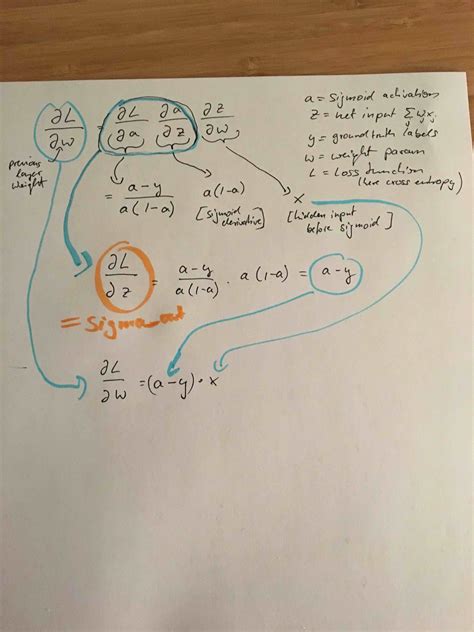 ∂L/∂w = ∂L/∂a ∂a/∂z ∂z/∂w
previous layer weight
a = sigmoid activation
z = net input Σwᵢxᵢ
y = ground truth labels
w = weight param
L = Loss function
(here cross entropy)
= a-y / a(1-a)
a(1-a)
[sigmoid derivative]
x
[hidden input before sigmoid]
∂L/∂z = a-y / a(1-a) · a(1-a) = a-y
= sigma_out
∂L/∂w = (a-y) · x